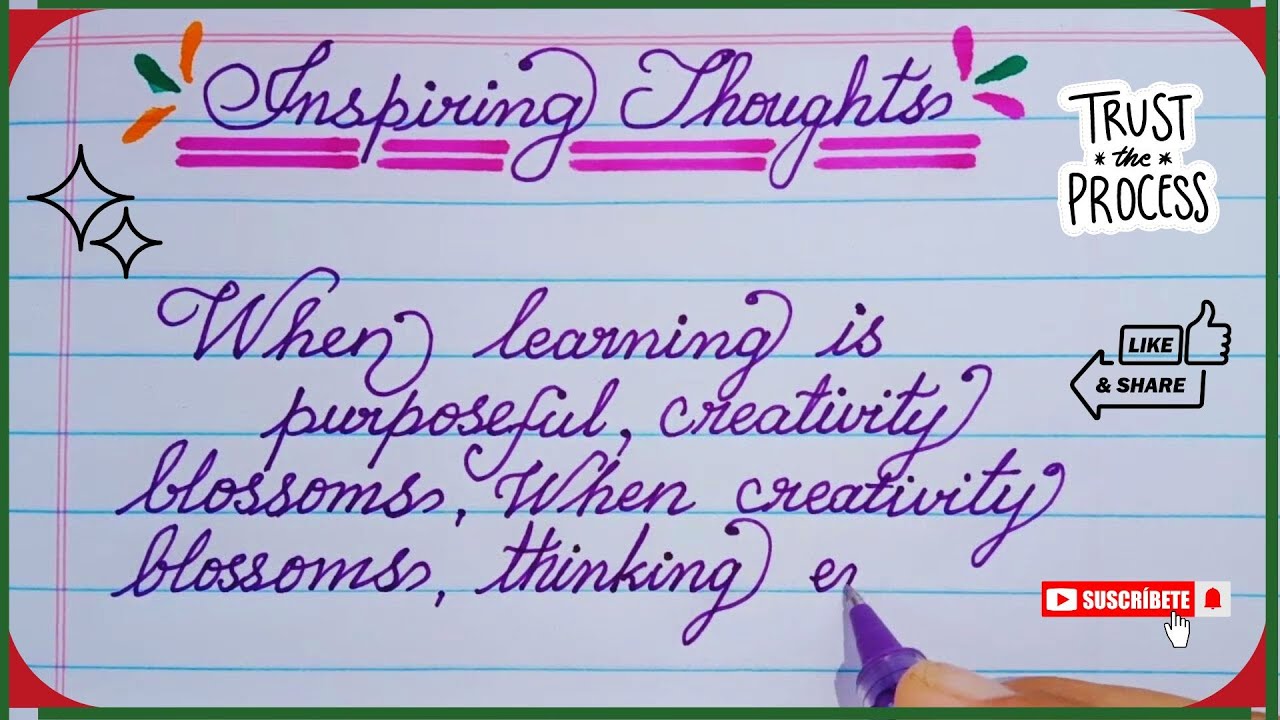 Inspiring Thoughts
TRUST
*the*
PROCESS
When learning is
LIKE
& SHARE
purposeful, creativity
blossoms, When creativity
blossoms, thinking
SUSCRÍBETE